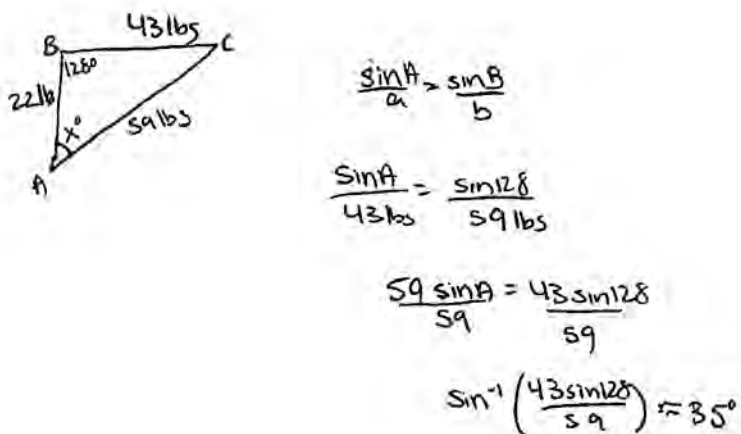 43 lbs
B C
128°
22 lb
x°
59 lbs
A
sinA/a = sinB/b
sinA/43 lbs = sin128/59 lbs
59 sinA/59 = 43 sin128/59
sin⁻¹ (43 sin128/59) ≈ 35°